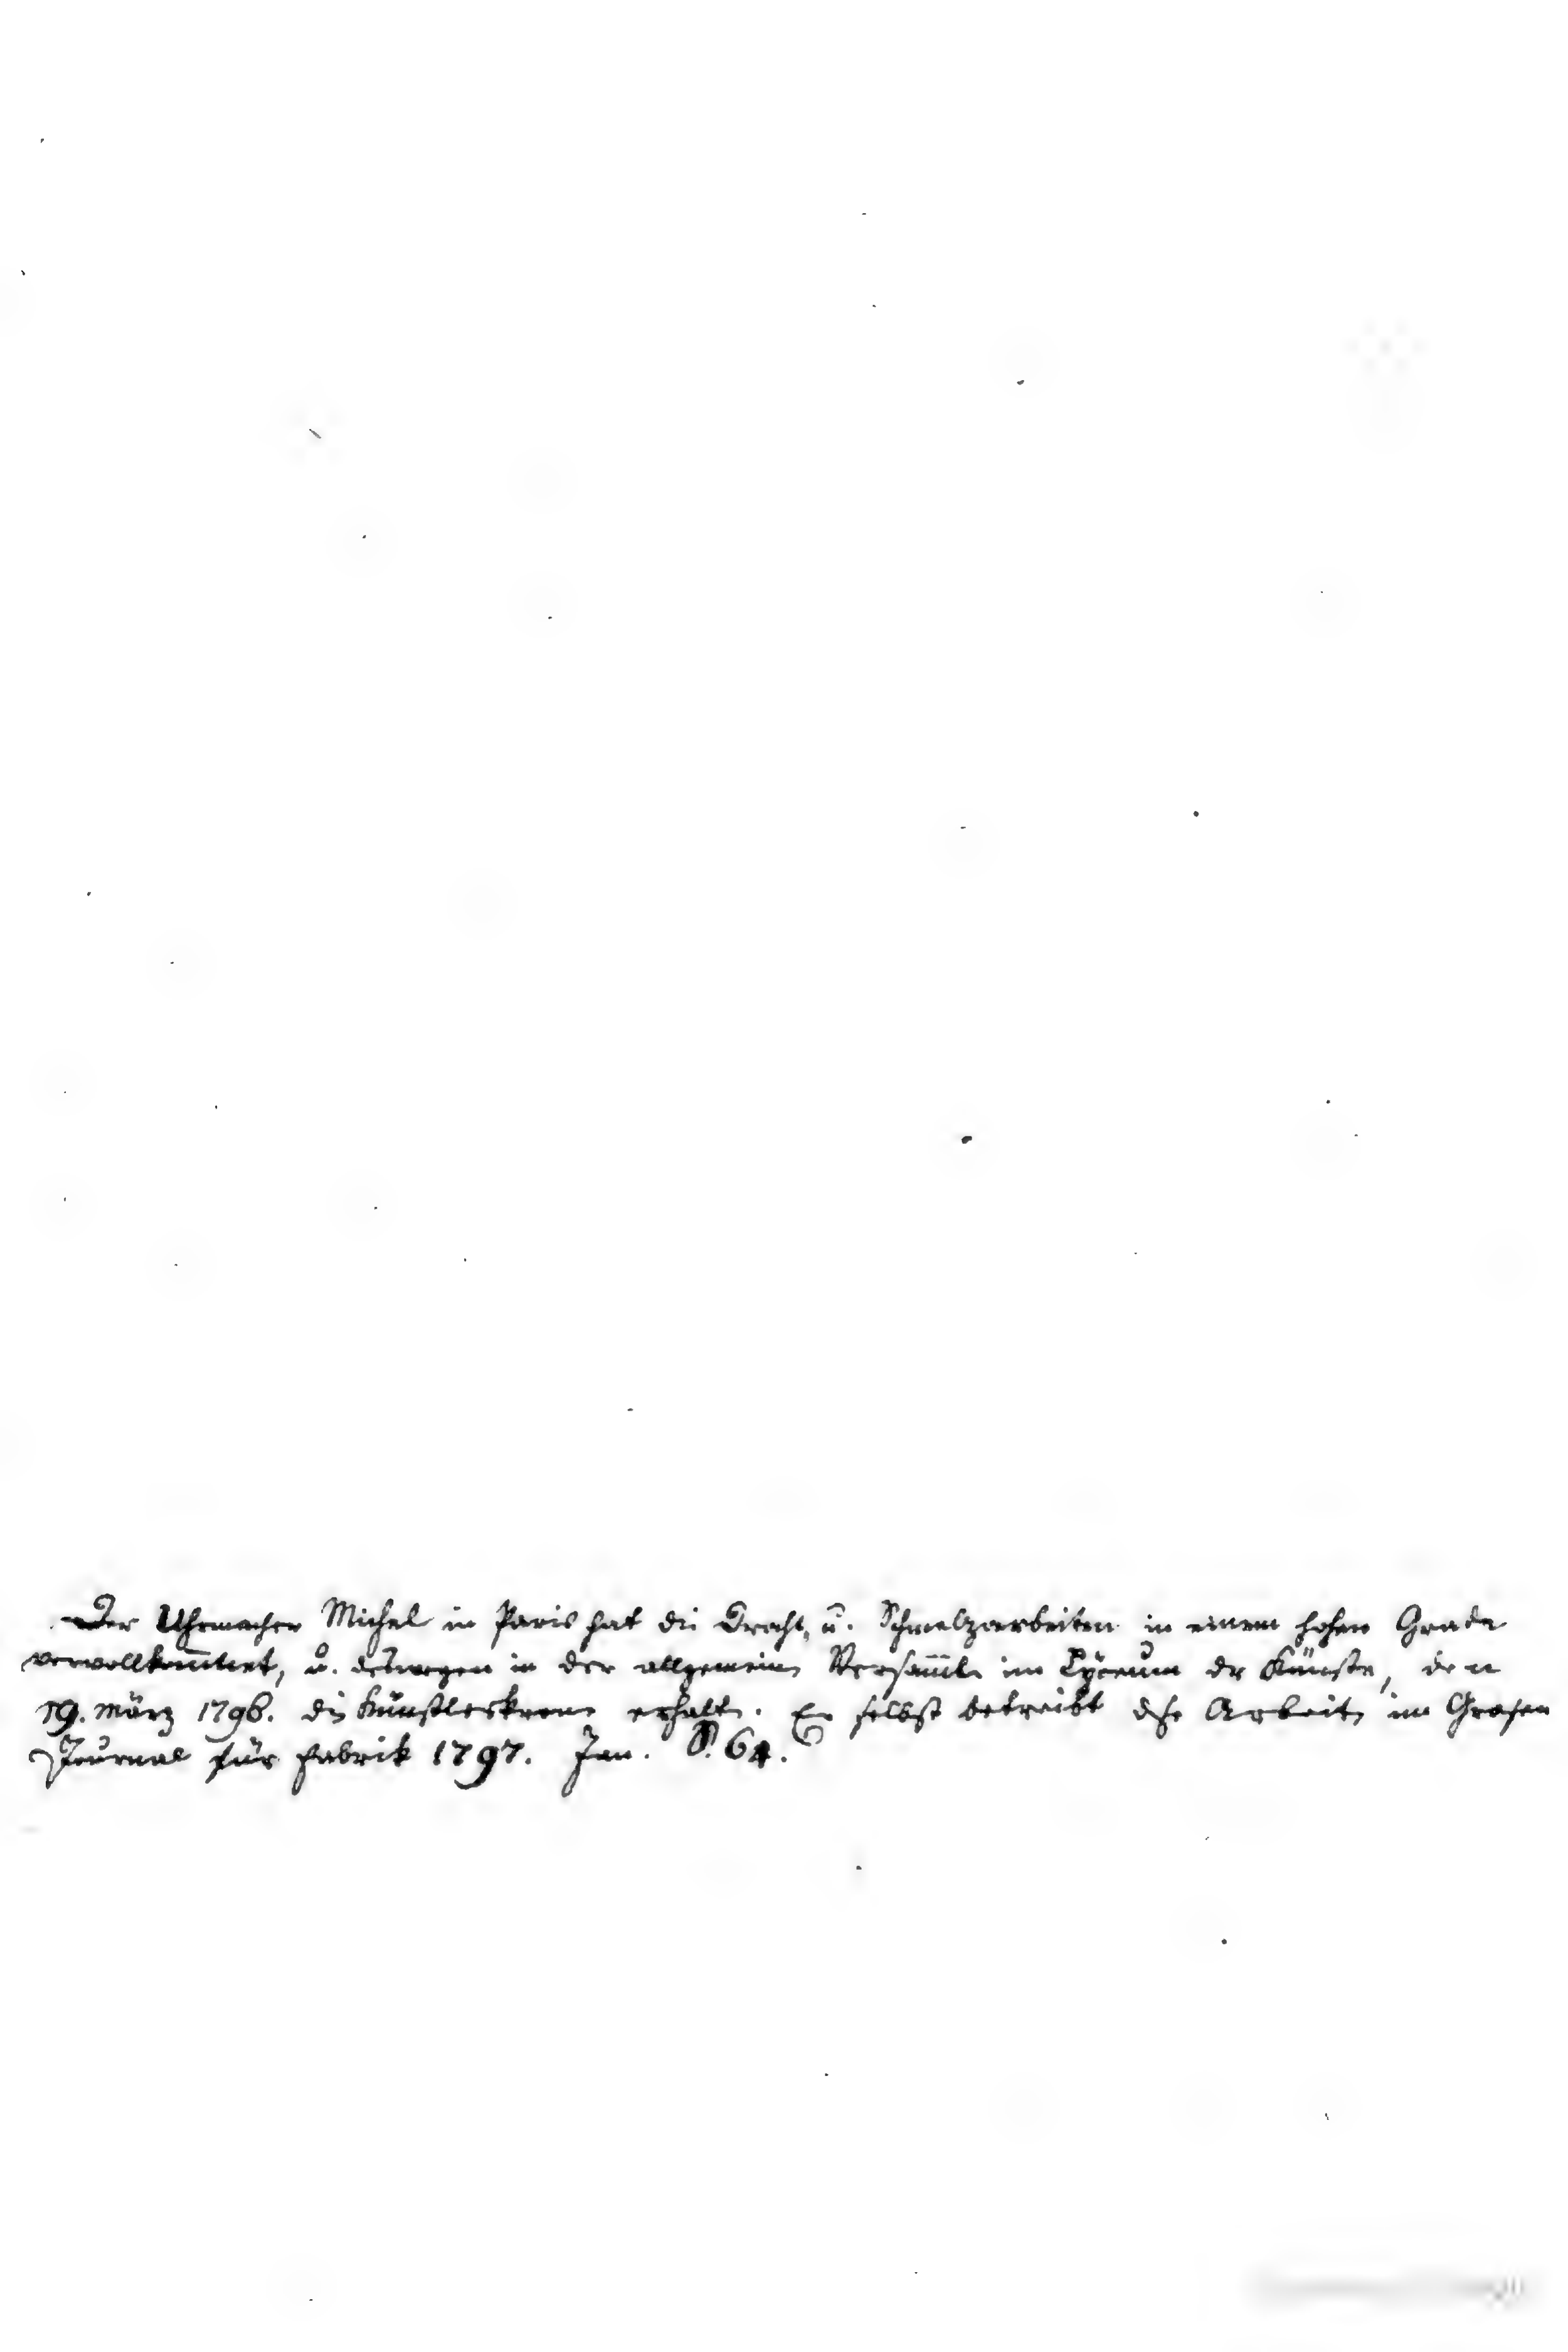 Der Uhrmacher Michel in Paris hat die Dracht, u. Schmelzarbeiten in einem hohen Grade
vervollkom̅net, u. deswegen in der allgemeinen Versam̅l. im Lyceum der Künste, den
19. März 1796. die Künstlerkrone erhalt. Er selbst betreibt dse Arbeit im Großen
Journal für Fabrik 1797. Jan. S. 64.